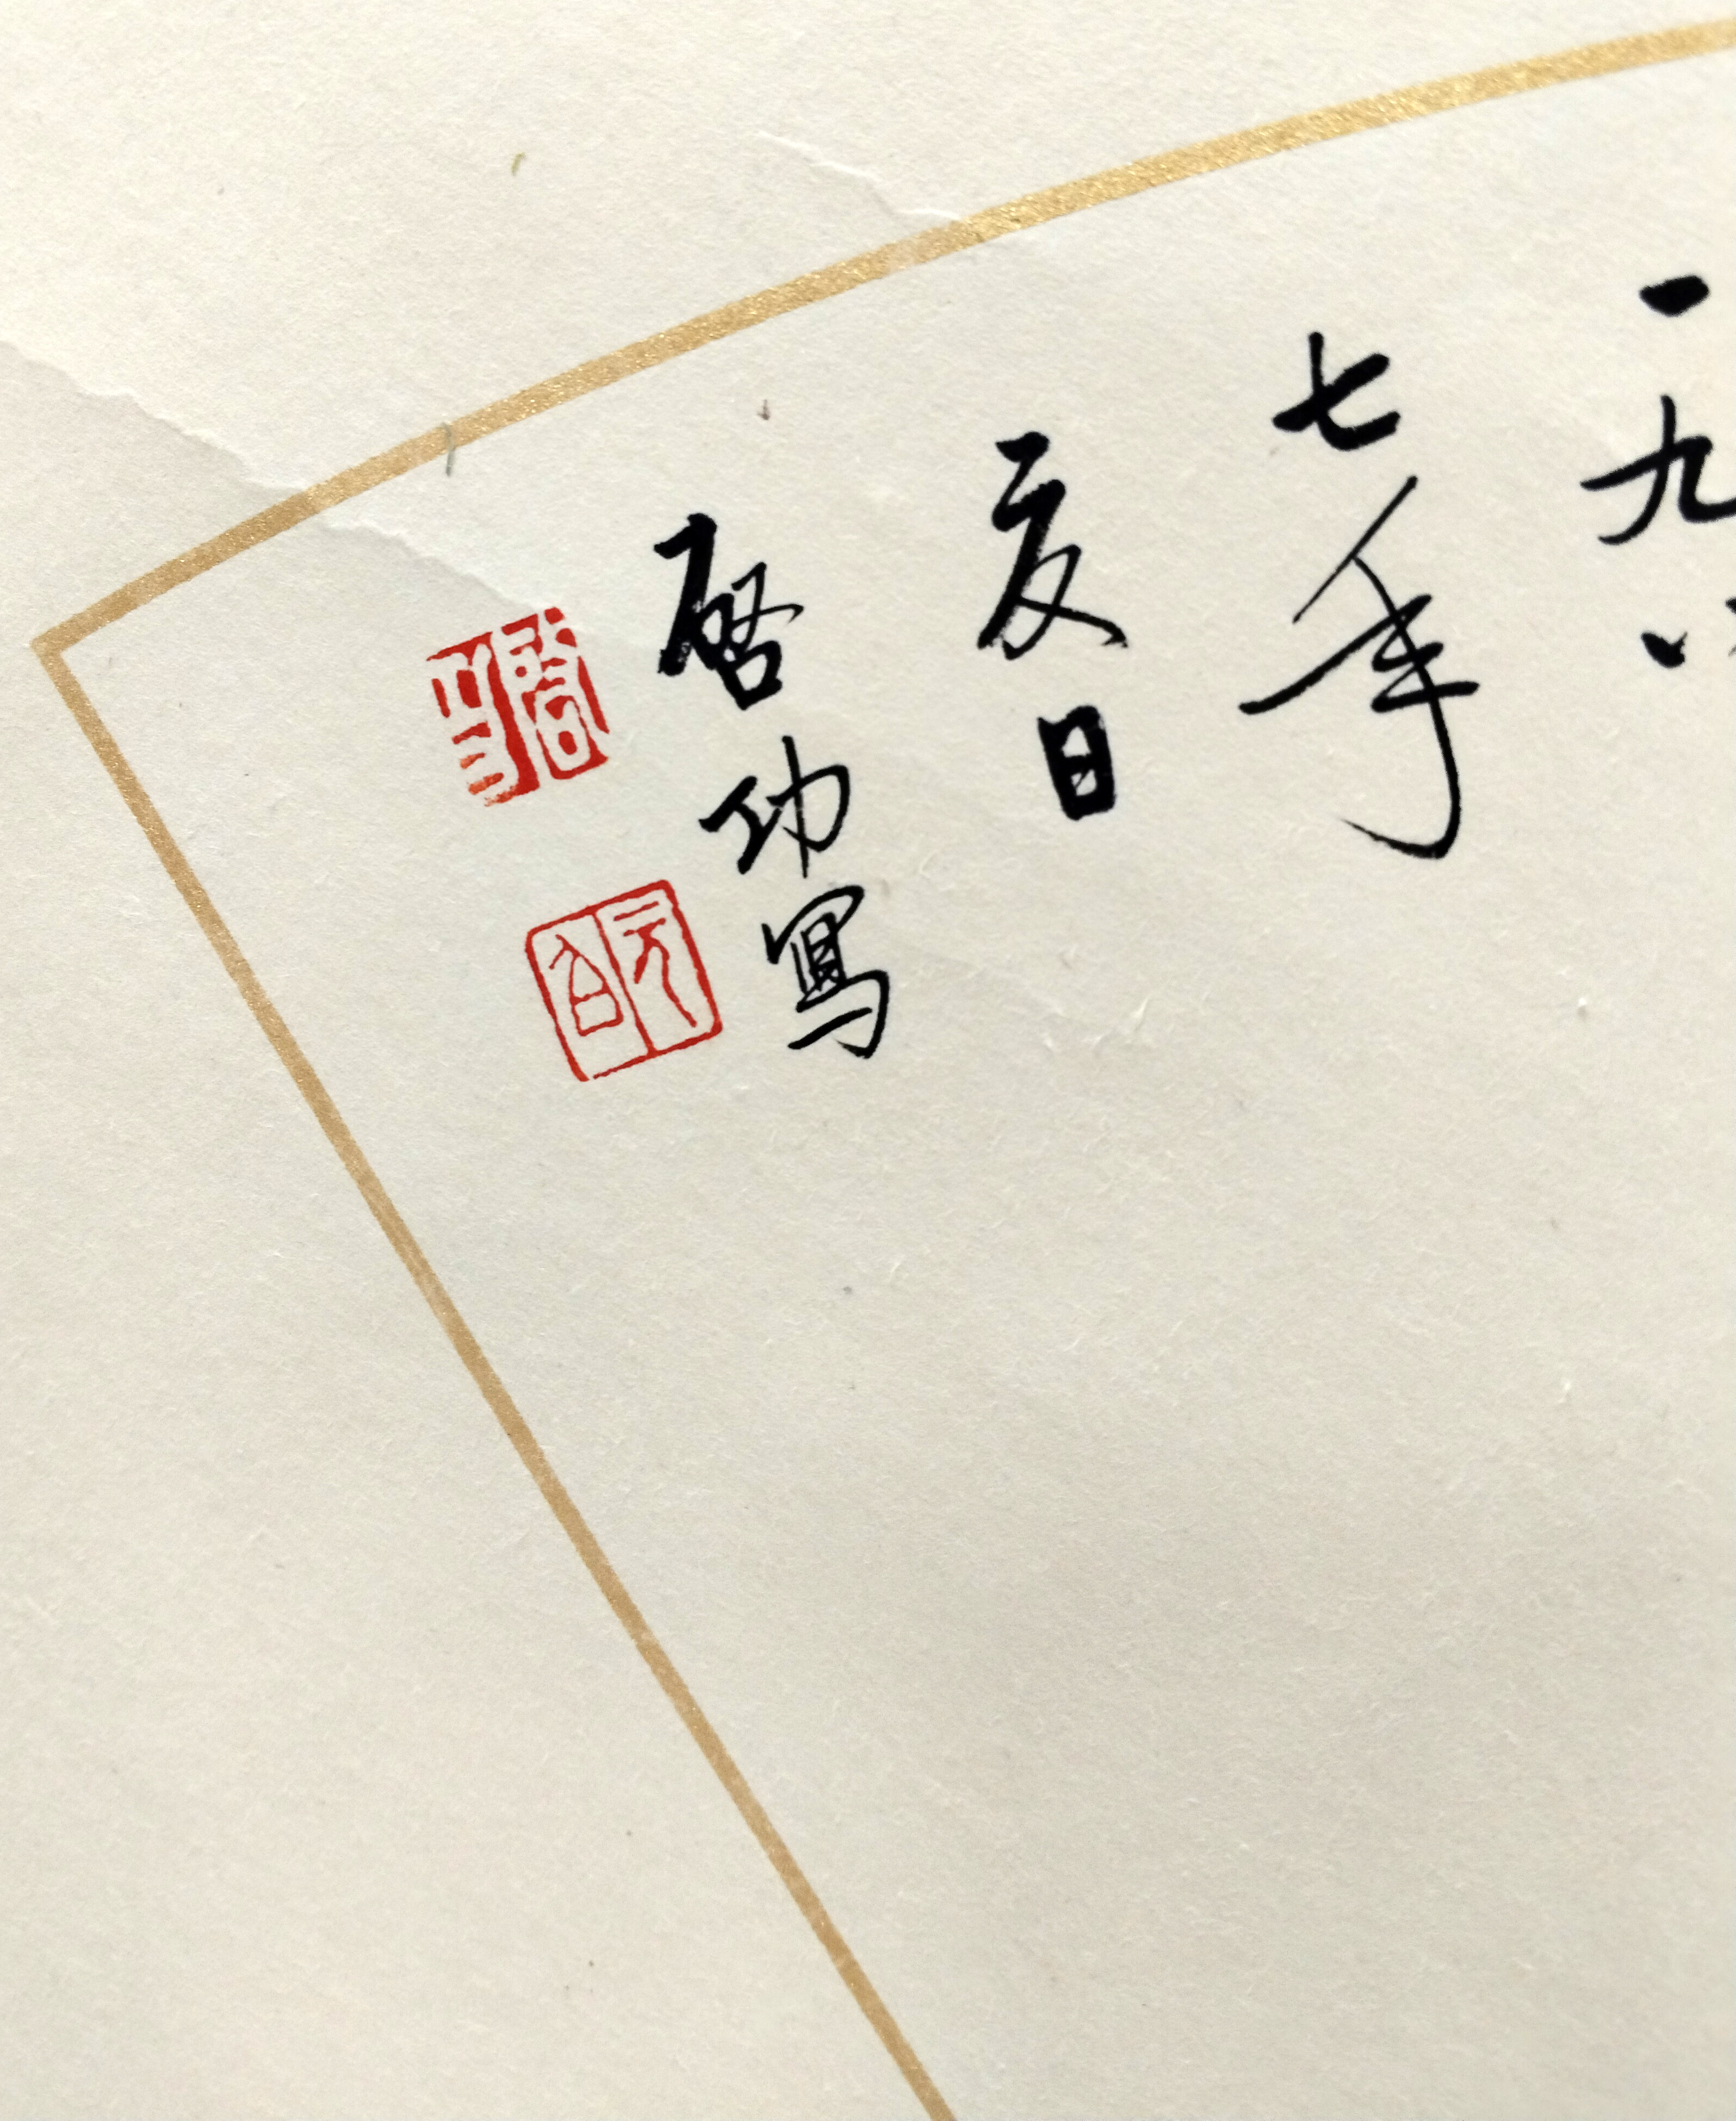 一九八
七年
夏日
啓功寫
啓功
元白